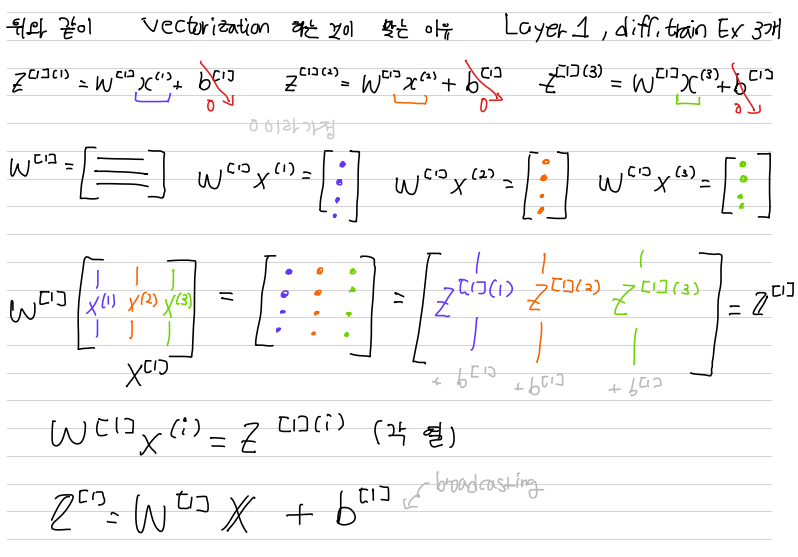 위와 같이 Vectorization 하는 것이 맞는 이유 Layer 1, diff. train Ex 3개
Z^[1](1) = W^[1]x^(1) + b^[1] Z^[1](2) = W^[1]x^(2) + b^[1] Z^[1](3) = W^[1]x^(3) + b^[1]
0 0 0
0이라 가정
W^[1] = [ ] W^[1]X^(1) = [ ] W^[1]X^(2) = [ ] W^[1]X^(3) = [ ]
W^[1] [X^(1) X^(2) X^(3)] = [ ] = [Z^[1](1) Z^[1](2) Z^[1](3)] = Z^[1]
X^[1] + b^[1] + b^[1] + b^[1]
W^[1]x^(i) = Z^[1](i) (각 열)
Z^[1] = W^[1] X + b^[1] broadcasting